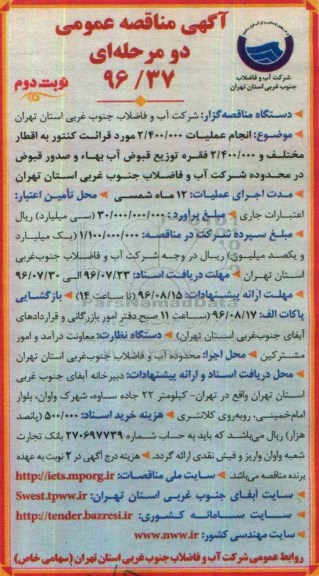 آگهی مناقصه عمومی
دو مرحله‌ای
۹۶/۳۷
شرکت آب و فاضلاب
جنوب غربی استان تهران
نوبت دوم
دستگاه مناقصه‌گزار: شرکت آب و فاضلاب جنوب غربی استان تهران
موضوع: انجام عملیات ۲/۴۰۰/۰۰۰ مورد قرائت کنتور به اقطار
مختلف و ۲/۴۰۰/۰۰۰ فقره توزیع قبوض آب بهاء و صدور قبوض
در محدوده شرکت آب و فاضلاب جنوب غربی استان تهران
مدت اجرای عملیات: ۱۲ ماه شمسی محل تأمین اعتبار:
اعتبارات جاری مبلغ برآورد: ۳۰/۰۰۰/۰۰۰/۰۰۰ (سی میلیارد) ریال
مبلغ سپرده شرکت در مناقصه: ۱/۱۰۰/۰۰۰/۰۰۰ (یک میلیارد
و یکصد میلیون) ریال در وجه شرکت آب و فاضلاب جنوب‌غربی
استان تهران مهلت دریافت اسناد: ۹۶/۰۷/۲۳ الی ۹۶/۰۷/۳۰
مهلت ارائه پیشنهادات: ۹۶/۰۸/۱۵ (تا ساعت ۱۴) بازگشایی
پاکات الف: ۹۶/۰۸/۱۷ (ساعت ۱۱ صبح دفتر امور بازرگانی و قراردادهای
آبفای جنوب‌غربی استان تهران) دستگاه نظارت: معاونت درآمد و امور
مشترکین محل اجرا: محدوده آب و فاضلاب جنوب‌غربی استان تهران
محل دریافت اسناد و ارائه پیشنهادات: دبیرخانه آبفای جنوب غربی
استان تهران واقع در تهران- کیلومتر ۲۲ جاده ساوه، شهرک واوان، بلوار
امام‌خمینی، روبه‌روی کلانتری هزینه خرید اسناد: ۵۰۰/۰۰۰ (پانصد
هزار) ریال می‌باشد که باید به حساب شماره ۲۷۰۶۹۷۷۳۹ بانک تجارت
شعبه واوان واریز و فیش نقدی ارائه گردد. هزینه درج آگهی در ۲ نوبت به عهده
برنده مناقصه می‌باشد. سایت ملی مناقصات: http://iets.mporg.ir
سایت آبفای جنوب غربی استان تهران: Swest.tpww.ir
سایت سامانه کشوری: http://tender.bazresi.ir
سایت مهندسی کشور: www.nww.ir
روابط عمومی شرکت آب و فاضلاب جنوب غربی استان تهران (سهامی خاص)